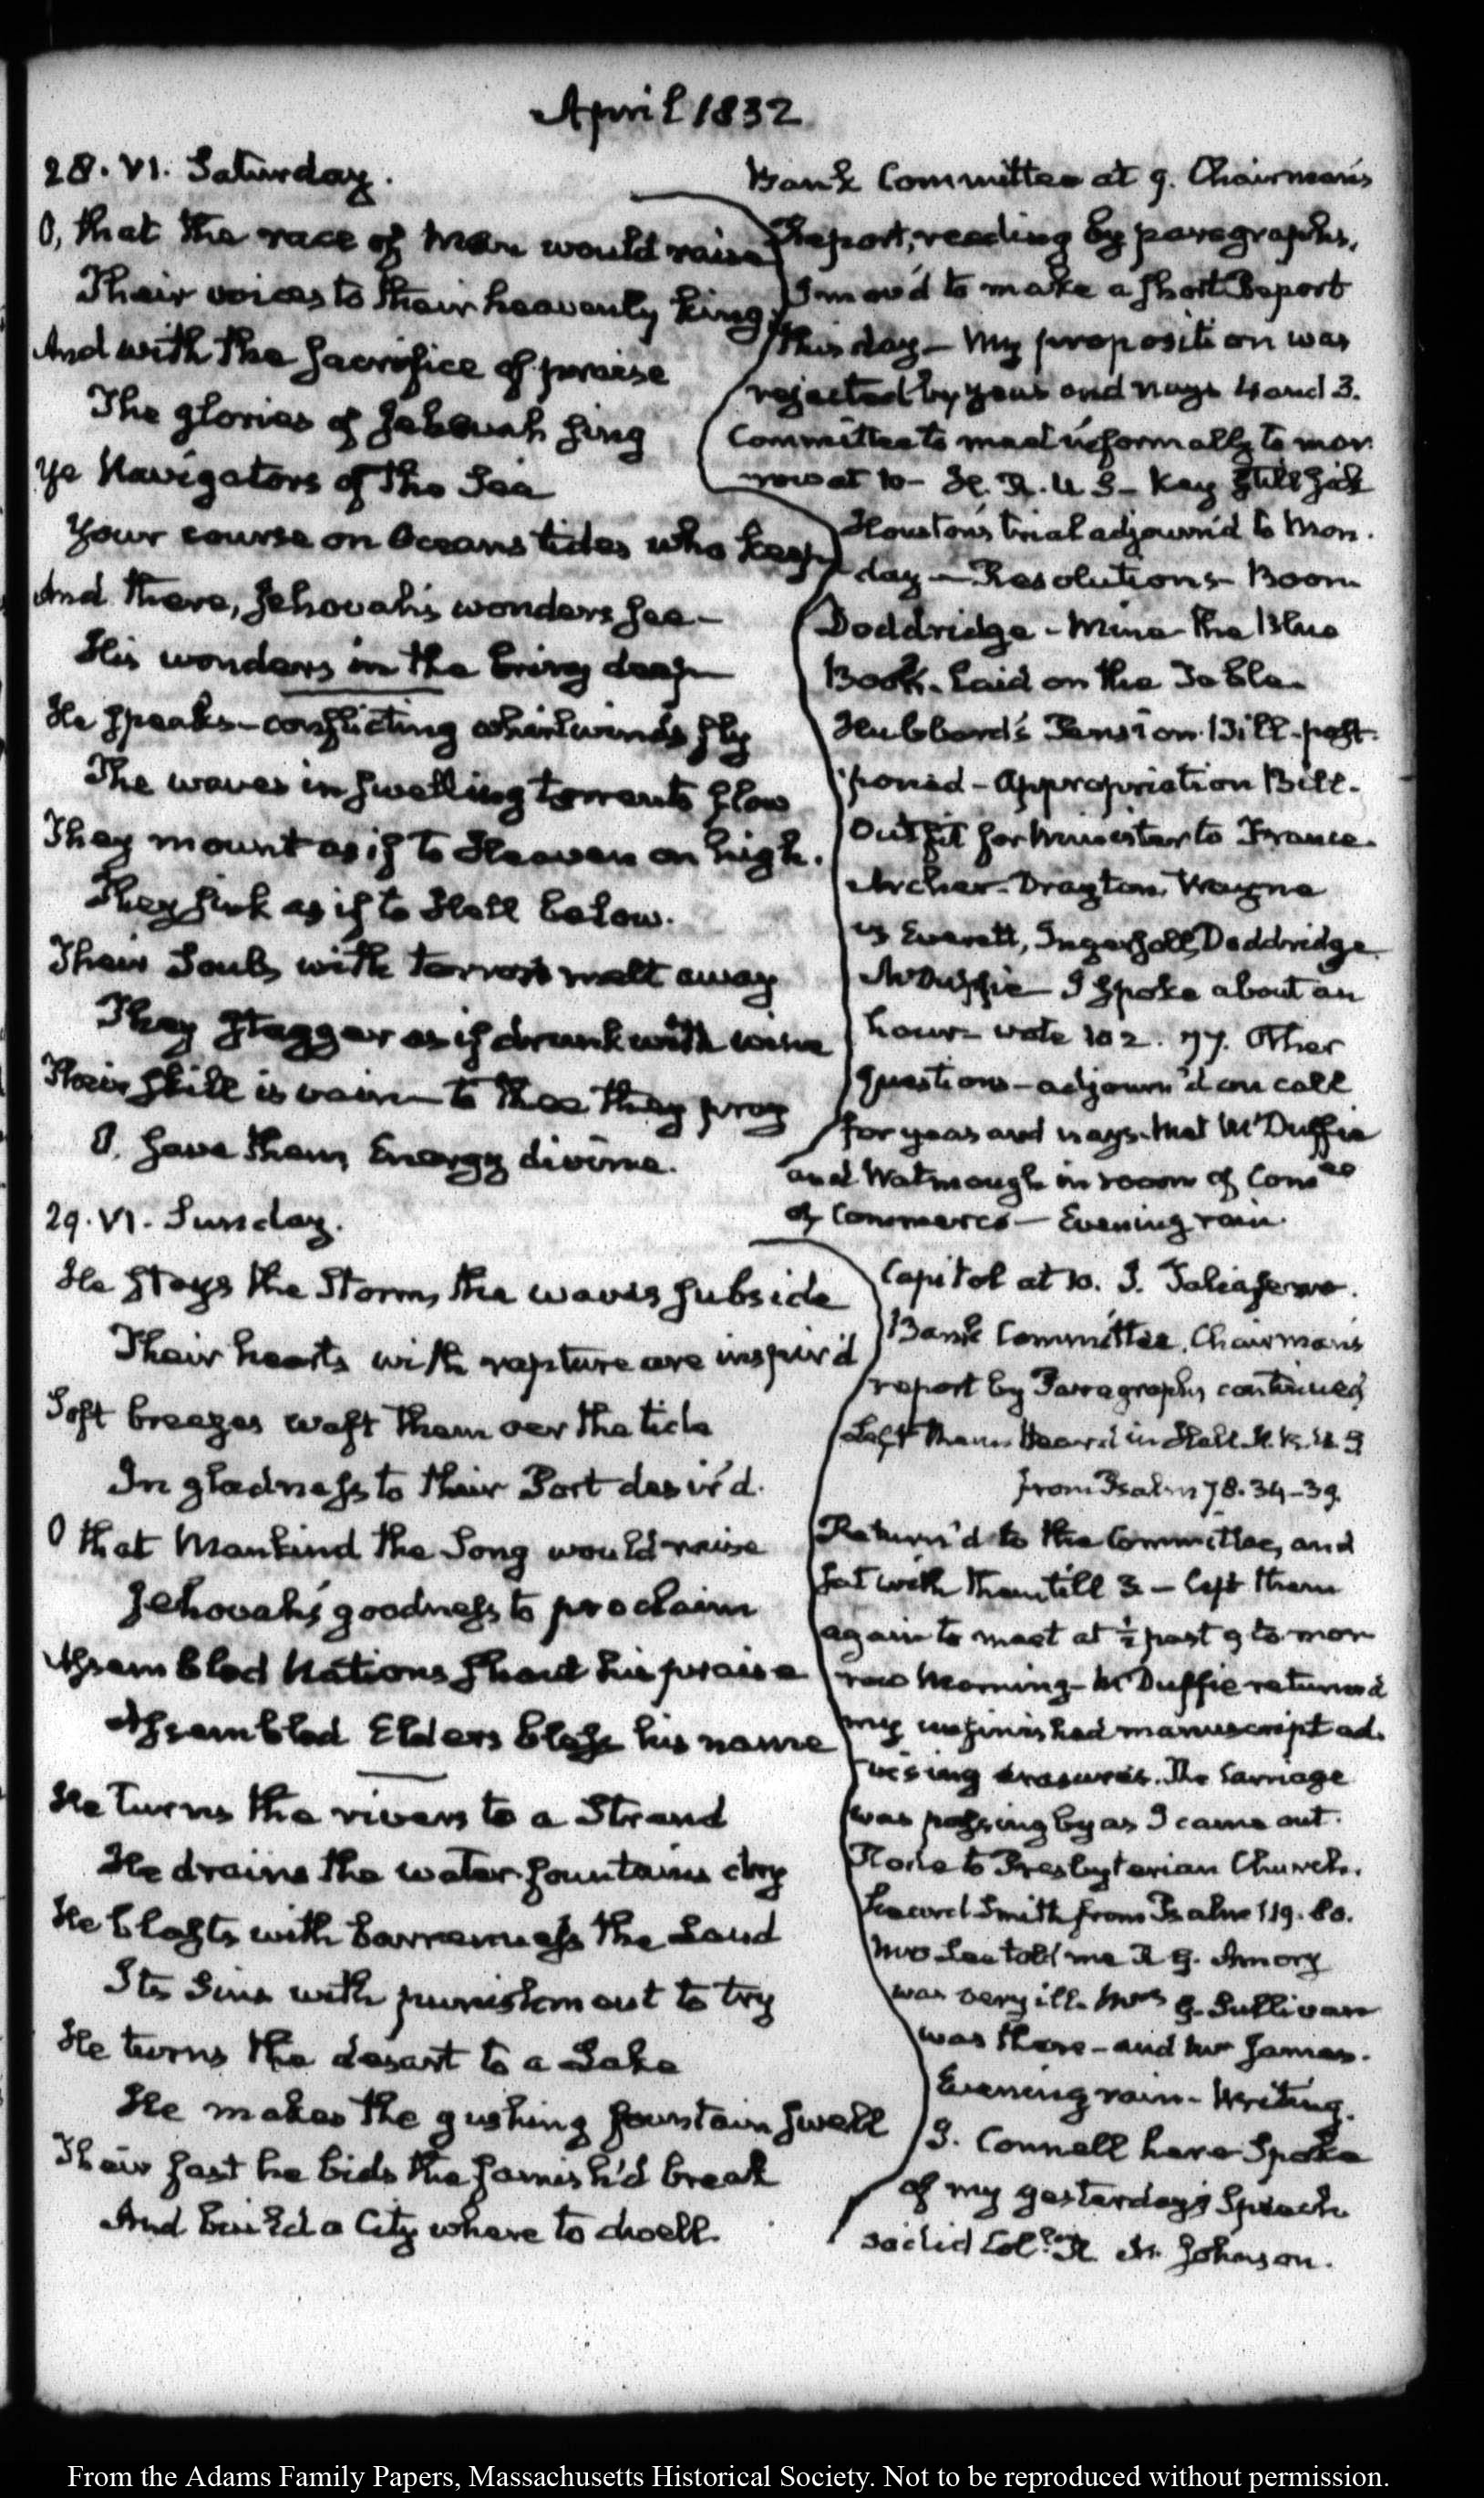 April 1832
28. VI. Saturday.
O, that the race of Man would raise
Their voices to their heavenly king,
And with the sacrifice of praise
The glories of Jehovah sing
Ye Navigators of the Sea
Your course on Oceans tides who keep
And there, Jehovah's wonders see—
His wonders in the briny deep—
He speaks—conflicting whirlwinds fly
The waves in swelling torrents flow
They mount as if to Heaven on high.
They sink as if to Hell below.
Their Souls with terrors melt away
They stagger as if drunk with wine
Their skill is vain—to thee they pray
O. save them, Energy divine.
Bank Committee at 9. Chairman's
Report, reading by paragraphs,
I mov'd to make a short Report
this day— My proposition was
rejected by yeas and nays 4 and 3.
Committee to meet informally to mor
row at 10— H. R. U S— Kay still sick
Houston's trial adjourn'd to Mon.
day— Resolutions— Boon
Doddridge— Mine— the Blue
Book. Laid on the Table.
Hubbard's Pension Bill—post
poned—Appropriation Bill.
Outfit for Minister to France.
Archer. Drayton, Wayne
vs Everett, Ingersoll, Doddridge
McDuffie— I spoke about an
hour— vote 102. 77. Other
questions—adjourn'd on call
for yeas and nays. Met McDuffie
and Watmough in room of Comee
of Commerce— Evening rain.
29. VI. Sunday.
He stays the Storm, the waves subside
Their hearts with rapture are inspir'd
Soft breezes waft them oer the tide
In gladness to their Port desir'd.
O that Mankind the Song would raise
Jehovah's goodness to proclaim
Assembled Nations shout his praise
Assembled Elders bless his name
He turns the rivers to a Strand
He drains the water-fountains dry
He blasts with barrenness the Land
Its Sins with punishment to try
He turns the desart to a Lake
He makes the gushing fountain swell
Their fast he bids the famish'd break
And build a City where to dwell.
Capitol at 10. J. Taliaferro.
Bank Committee. Chairman's
report by Paragraphs continued
Left them. Heard in Hall H. R. U. S
from Psalm 78. 34-39.
Return'd to the Committee, and
sat with them till 3— left them
again to meet at ½ past 9 to mor
row Morning— McDuffie returned
my unfinished manuscript ad.
vising erasures. The Carriage
was passing by as I came out.
Rode to Presbyterian Church.
heard Smith from Psalm 119. 80.
Mrs Lee told me R G. Amory
was very ill. Mrs G. Sullivan
was there—and Mr James.
Evening rain— Writing.
J. Connell here Spoke
of my yesterday's Speech
so did Coll. R M. Johnson.
From the Adams Family Papers, Massachusetts Historical Society. Not to be reproduced without permission.